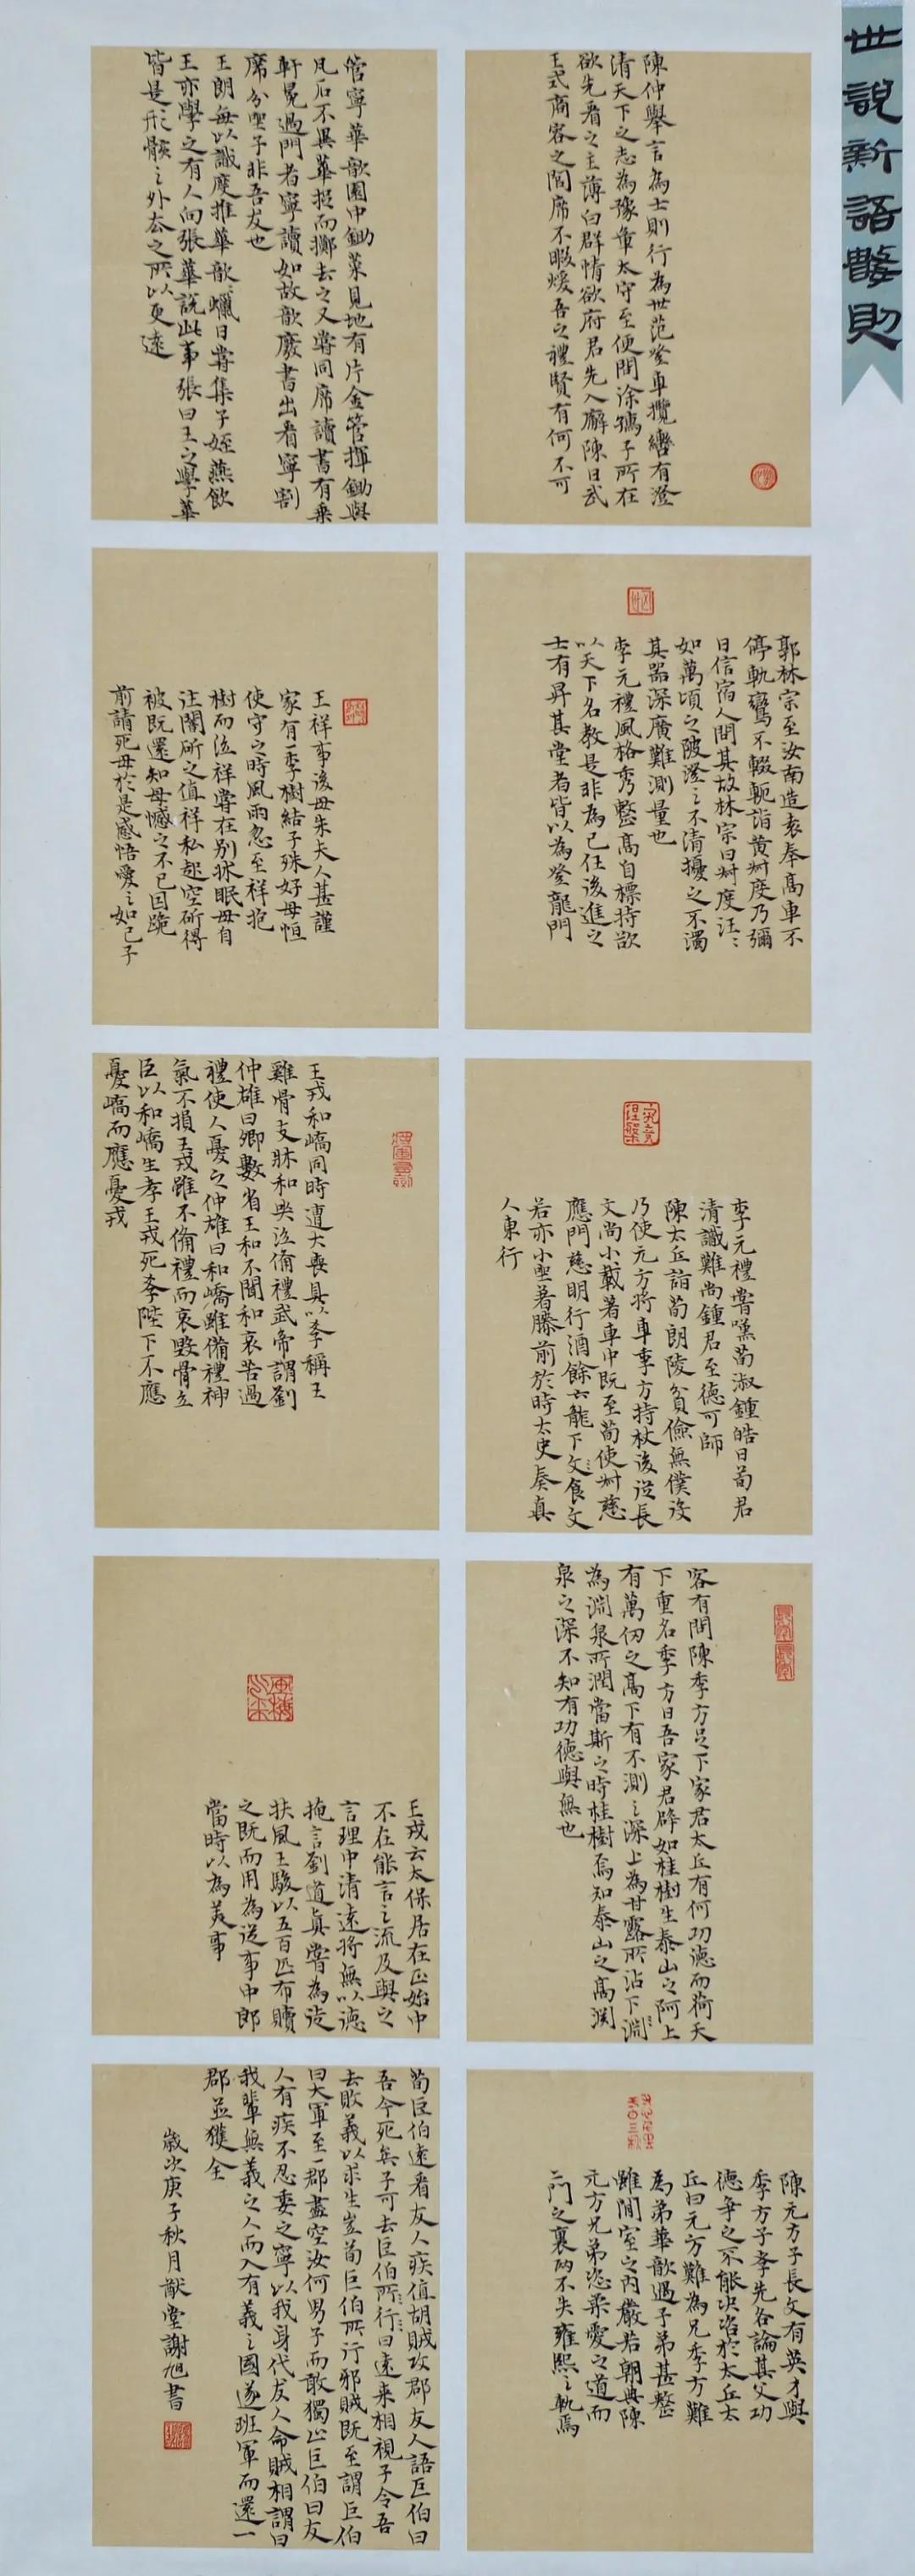 世說新語數則
陳仲舉言為士則行為世范登車攬轡有澄
清天下之志為豫章太守至便問徐孺子所在
欲先看之主薄白群情欲府君先入廨陳曰武
王式商容之閭席不暇煖吾之禮賢有何不可
管寧華歆園中鋤菜見地有片金管揮鋤與
凡石不異華捉而擲去之又嘗同席讀書有乘
軒冕過門者寧讀如故歆廢書出看寧割
席分坐子非吾友也
王朗每以識度推華歆蠟日嘗集子姪燕飲
王亦學之有人向張華說此事張曰王之學華
皆是形骸之外去之所以更遠
郭林宗至汝南造袁奉高車不
停軌鸞不輟軛詣黃叔度乃彌
日信宿人問其故林宗曰叔度汪〻
如萬頃之陂澄之不清擾之不濁
其器深廣難測量也
李元禮風格秀整高自標持欲
以天下名教是非為己任後進之
士有昇其堂者皆以為登龍門
王祥事後母朱夫人甚謹
家有一李樹結子殊好母恒
使守之時風雨忽至祥抱
樹而泣祥嘗在別牀眠母自
往闇斫之值祥私起空斫得
被既還知母憾之不已因跪
前請死母於是感悟愛之如己子
李元禮嘗嘆荀淑鍾皓曰荀君
清識難尚鍾君至德可師
陳太丘詣荀朗陵貧儉無僕役
乃使元方將車季方持杖後從長
文尚小載著車中既至荀使叔慈
應門慈明行酒餘六龍下食文
若亦小坐著膝前於時太史奏真
人東行
王戎和嶠同時遭大喪具以孝稱王
雞骨支牀和哭泣備禮武帝謂劉
仲雄曰卿數省王和不聞和哀苦過
禮使人憂之仲雄曰和嶠雖備禮神
氣不損王戎雖不備禮而哀毀骨立
臣以和嶠生孝王戎死孝陛下不應
憂嶠而應憂戎
客有問陳季方足下家君太丘有何功德而荷天
下重名季方曰吾家君辟如桂樹生泰山之阿上
有萬仞之高下有不測之深上為甘露所沾下淵
為淵泉所潤當斯之時桂樹焉知泰山之高淵
泉之深不知有功德與無也
王戎云太保居在正始中
不在能言之流及與之
言理中清遠將無以德
掩言劉道真嘗為徒
扶風王駿以五百匹布贖
之既而用為從事中郎
當時以為美事
陳元方子長文有英才與
季方子孝先各論其父功
德爭之不能決咨於太丘太
丘曰元方難為兄季方難
為弟華歆過子弟甚整
雖閒室之內嚴若朝典陳
元方兄弟恣柔愛之道而
二門之裏兩不失雍熙之軌焉
荀巨伯遠看友人疾值胡賊攻郡友人語巨伯曰
吾今死矣子可去巨伯所行曰遠來相視子令吾
去敗義以求生豈荀巨伯所行邪賊既至謂巨伯
曰大軍至一郡盡空汝何男子而敢獨止巨伯曰友
人有疾不忍委之寧以我身代友人命賊相謂曰
我輩無義之人而入有義之國遂班軍而還一
郡並獲全
歲次庚子秋月猷堂謝旭書